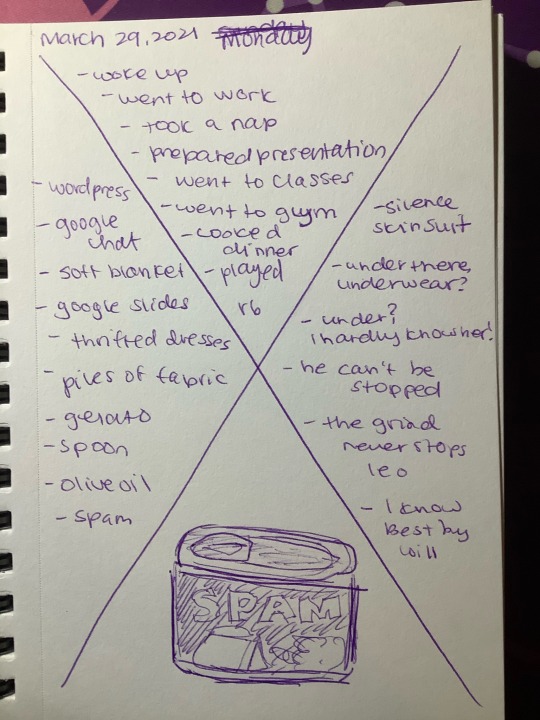 March 29, 2021 Monday
- woke up
- went to work
- took a nap
- prepared presentation
- went to classes
- went to gym
- cooked
dinner
- played
r6
- wordpress
- google
chat
- soft blanket
- google slides
- thrifted dresses
- piles of fabric
- gelato
- spoon
- olive oil
- spam
- silence
skinsuit
- under there,
underwear?
- under?
I hardly know her!
- he can't be
stopped
- the grind
never stops
leo
- I know
Best by
will
SPAM